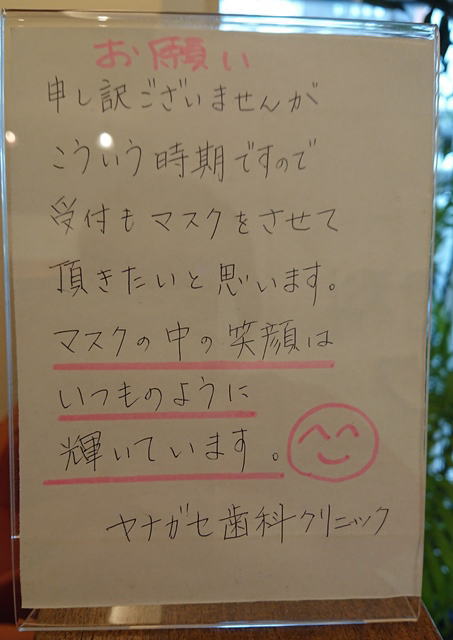 お願い
申し訳ございませんが
こういう時期ですので
受付もマスクをさせて
頂きたいと思います。
マスクの中の笑顔は
いつものように
輝いています。
ヤナガセ歯科クリニック